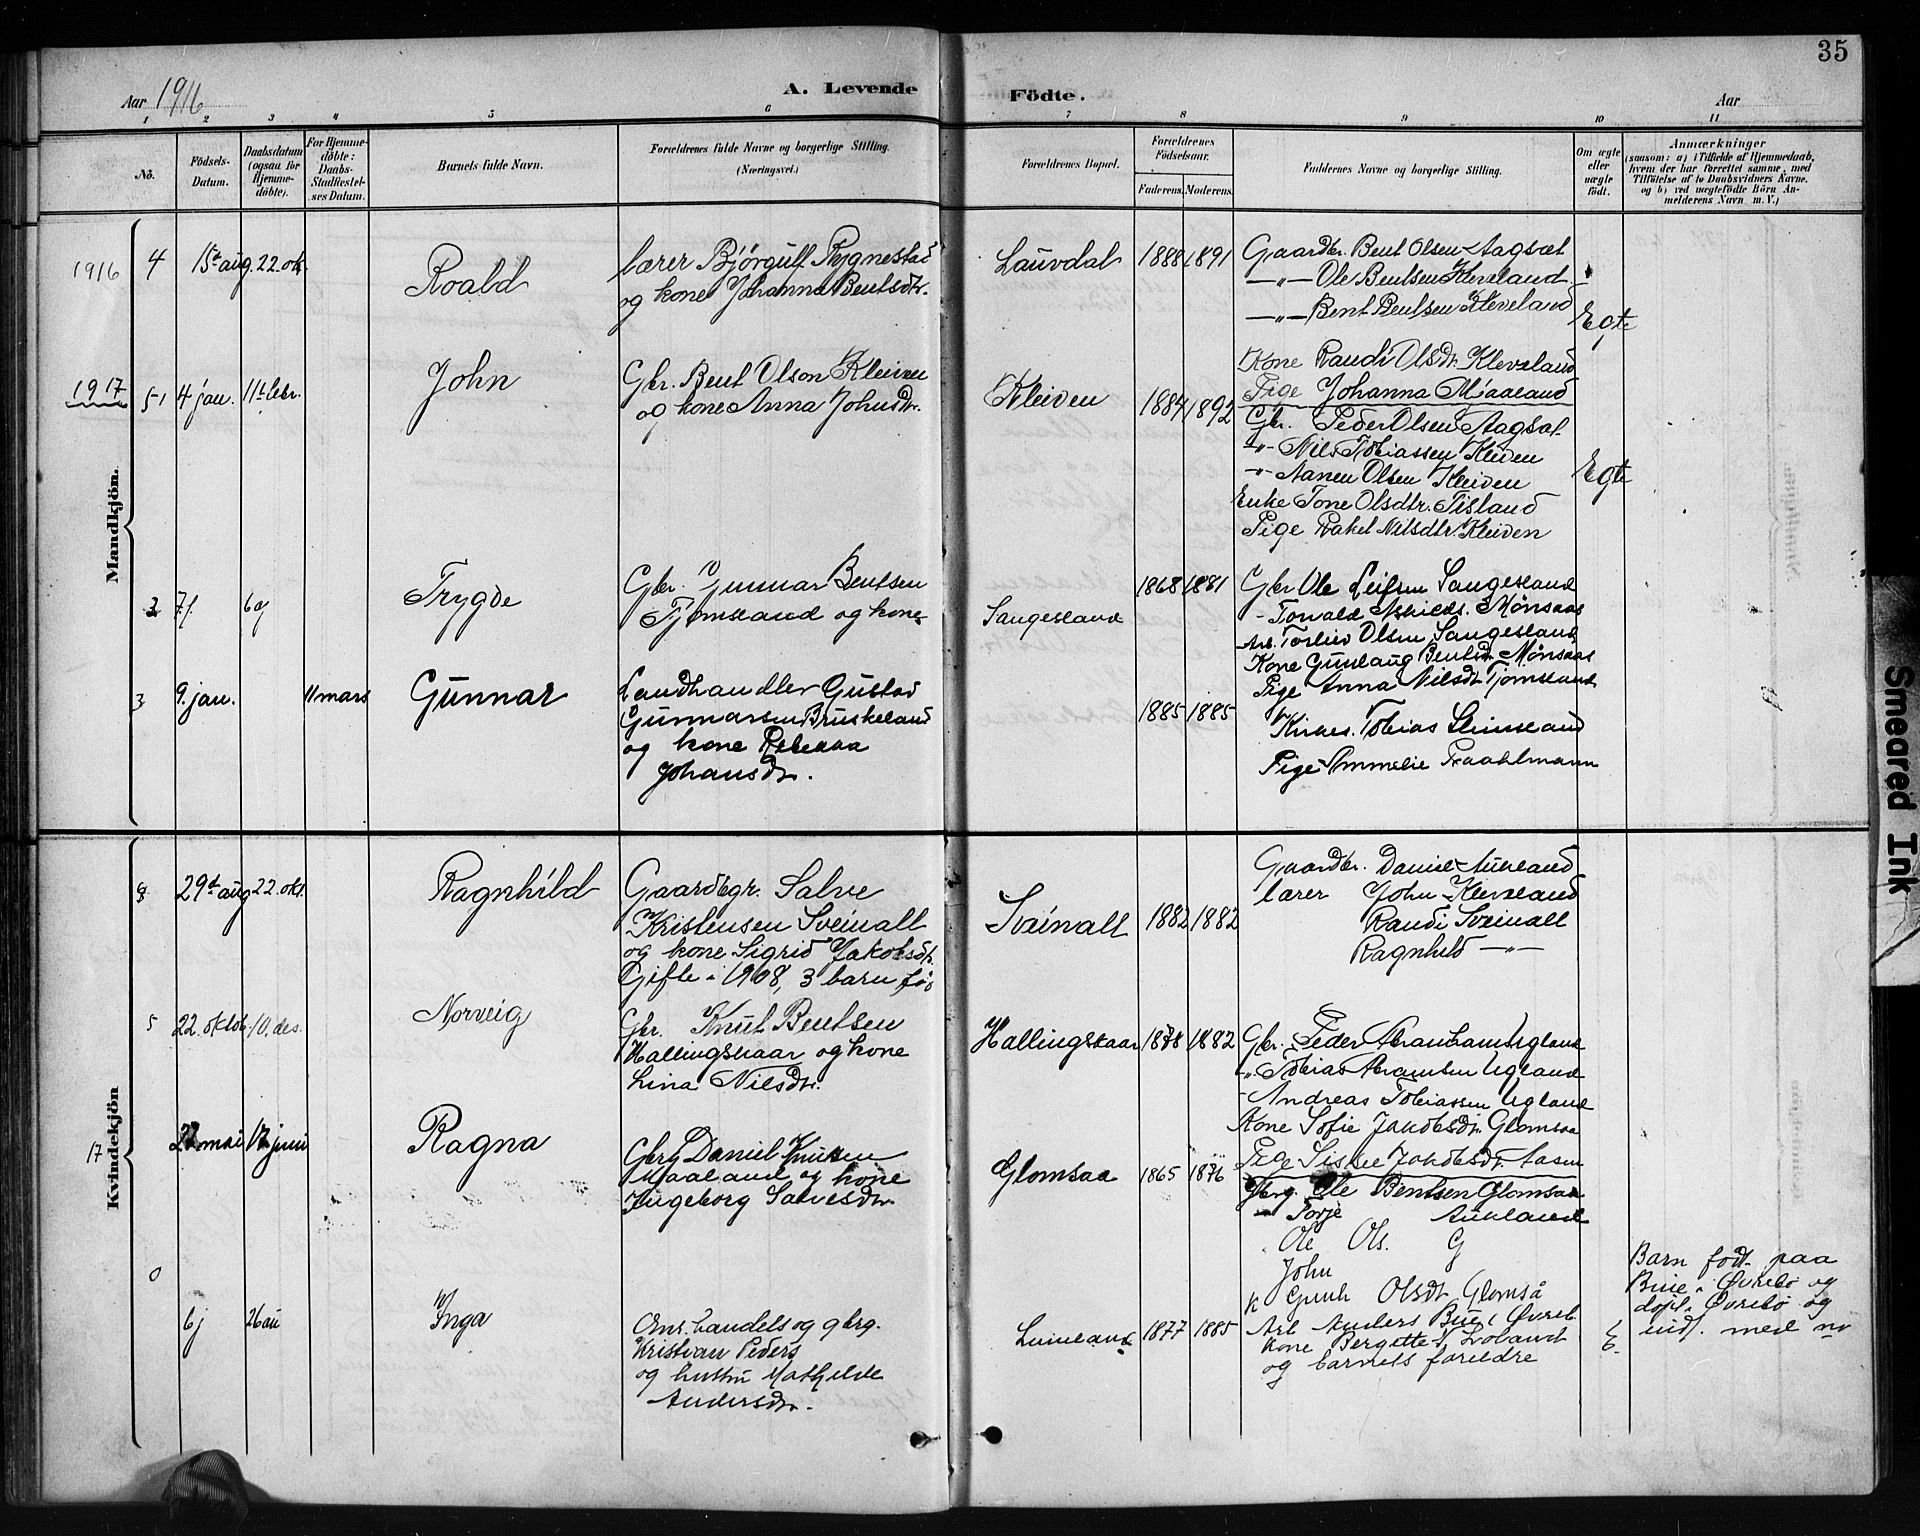 35
Aar 1916
A. Levende
Födte.
Aar
1 2 3 4 5 6 7 8 9 10 11
No.
Födsels-Datum.
Daabsdatum (ogsaa for Hjemme-döbte).
For Hjemme-döbte: Daabs-Stadfæstel-ses Datum.
Barnets fulde Navn.
Forældrenes fulde Navne og borgerlige Stilling.
(Næringsvei.)
Forældrenes Bopæl.
Forældrenes Födselsaar.
Faderens. Moderens.
Faddernes Navne og borgerlige Stilling.
Om ægte eller uægte födt.
Anmærkninger
(saasom: a) i Tilfælde af Hjemmedaab,
hvem der har forrettet samme, med
Tilföielse af to Daabsvidners Navne,
og b) ved uægtefödte Börn An-
melderens Navn m. V.)
Mandkjön.
1916 4 15t aug. 22. okt. Roald
lærer Bjørgulf Rygnestad
og kone Johanna Bentsdtr.
Lauvdal 1888 1891
Gaardbr. Bent Olsen Aagsæt
—"— Ole Bentsen Kleveland
—"— Bent Bentsen Kleveland
Kone Randi Olsdtr. Kleveland
Pige Johanna Maaland
Egte
1917 5 4 jan. 11t febr. John
Gbr. Bent Olson Kleiven
og kone Anna Johnsdtr.
Kleiven 1884 1892
Gbr. Peder Olsen Aagsæt
-"- Nils Tobiassen Kleiven
-"- Aanen Olsen Kleiven
Enke Tone Olsdtr. Tisland
Pige Rakel Nilsdtr. Kleiven
Egte
2 7/1 6 Trygde
Gbr. Gunnar Bentsen
Tjomsland og kone
Sangesland 1868 1881
Gbr Ole Leifsen Sangesland
- Torvald Mønsaas
Arb. Torleiv Olsen Sangesland
Kone Gunlaug Bentsd. Mønsaas
Pige Anna Nilsdt Tjomsland
3 9. jan. 11 mars Gunnar
Landhandler Gustav
Gunnarsen Bruskeland
og kone Rebekka
Johansdtr.
1885 1885
Kirkes. Tobias
Pige Emmelie
Kvindekjön
29t aug 22. okt. Ragnhild
Gaardbgr. Salve
Kristensen Sveinall
og kone Sigrid Jakobsdtr.
Gifte i 1908, 3 barn før
Sveinall 1882 1882
Gaardbr. Daniel Aukland
lærer John Kleveland
Randi Sveinall
Ragnhild —"—
5 22. oktob. 10. des. Norveig
Gbr. Knut Bentsen
Hallingskaar og kone
Lina Nilsdtr.
Hallingskaar 1878 1882
Gbr. Peder Abrahamsen Ugland
-"- Tobias Abramsen Ugland
- Andreas Tobiassen Ugland
Kone Sofie Jakobsdtr. Glomsaa
Pige Jakobsdtr. Aasen
17 mai 17 juni Ragna
Gbrg Daniel Knutsen
Maaland og kone
Ingeborg Salvesdtr.
Glomsaa 1865 1876
Gbrg. Ole Bentsen Glomsaa
— Torje Aukland
Ole Ols. G
John
K Gunh Olsdt Glomså
6 j 26 au Inga
Anr. handels og gbrg.
Kristian Peders
og hustru Mathilde
Andersdtr.
1877 1885
Arb Anders Bue, Øvreb
Kone Bergette
og barnets foreldre
E.
Barn født paa
Bue i Øvrebø og
døpt i Øvrebø og
indf. med no
Smeared Ink